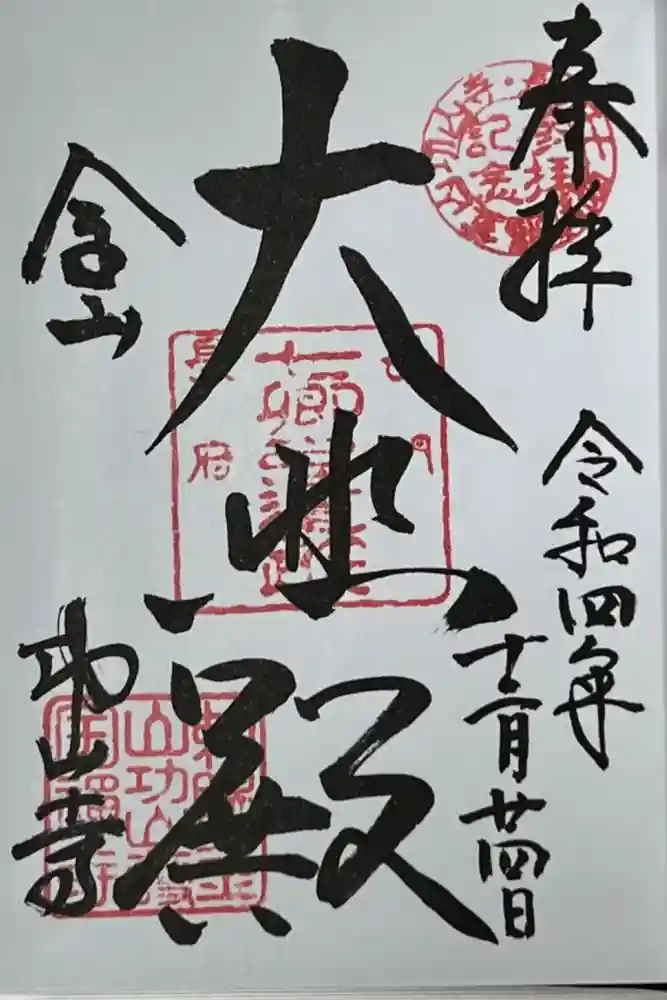 奉拝
令和四年
十二月廿四日
大悲殿
金山
功山寺
長府